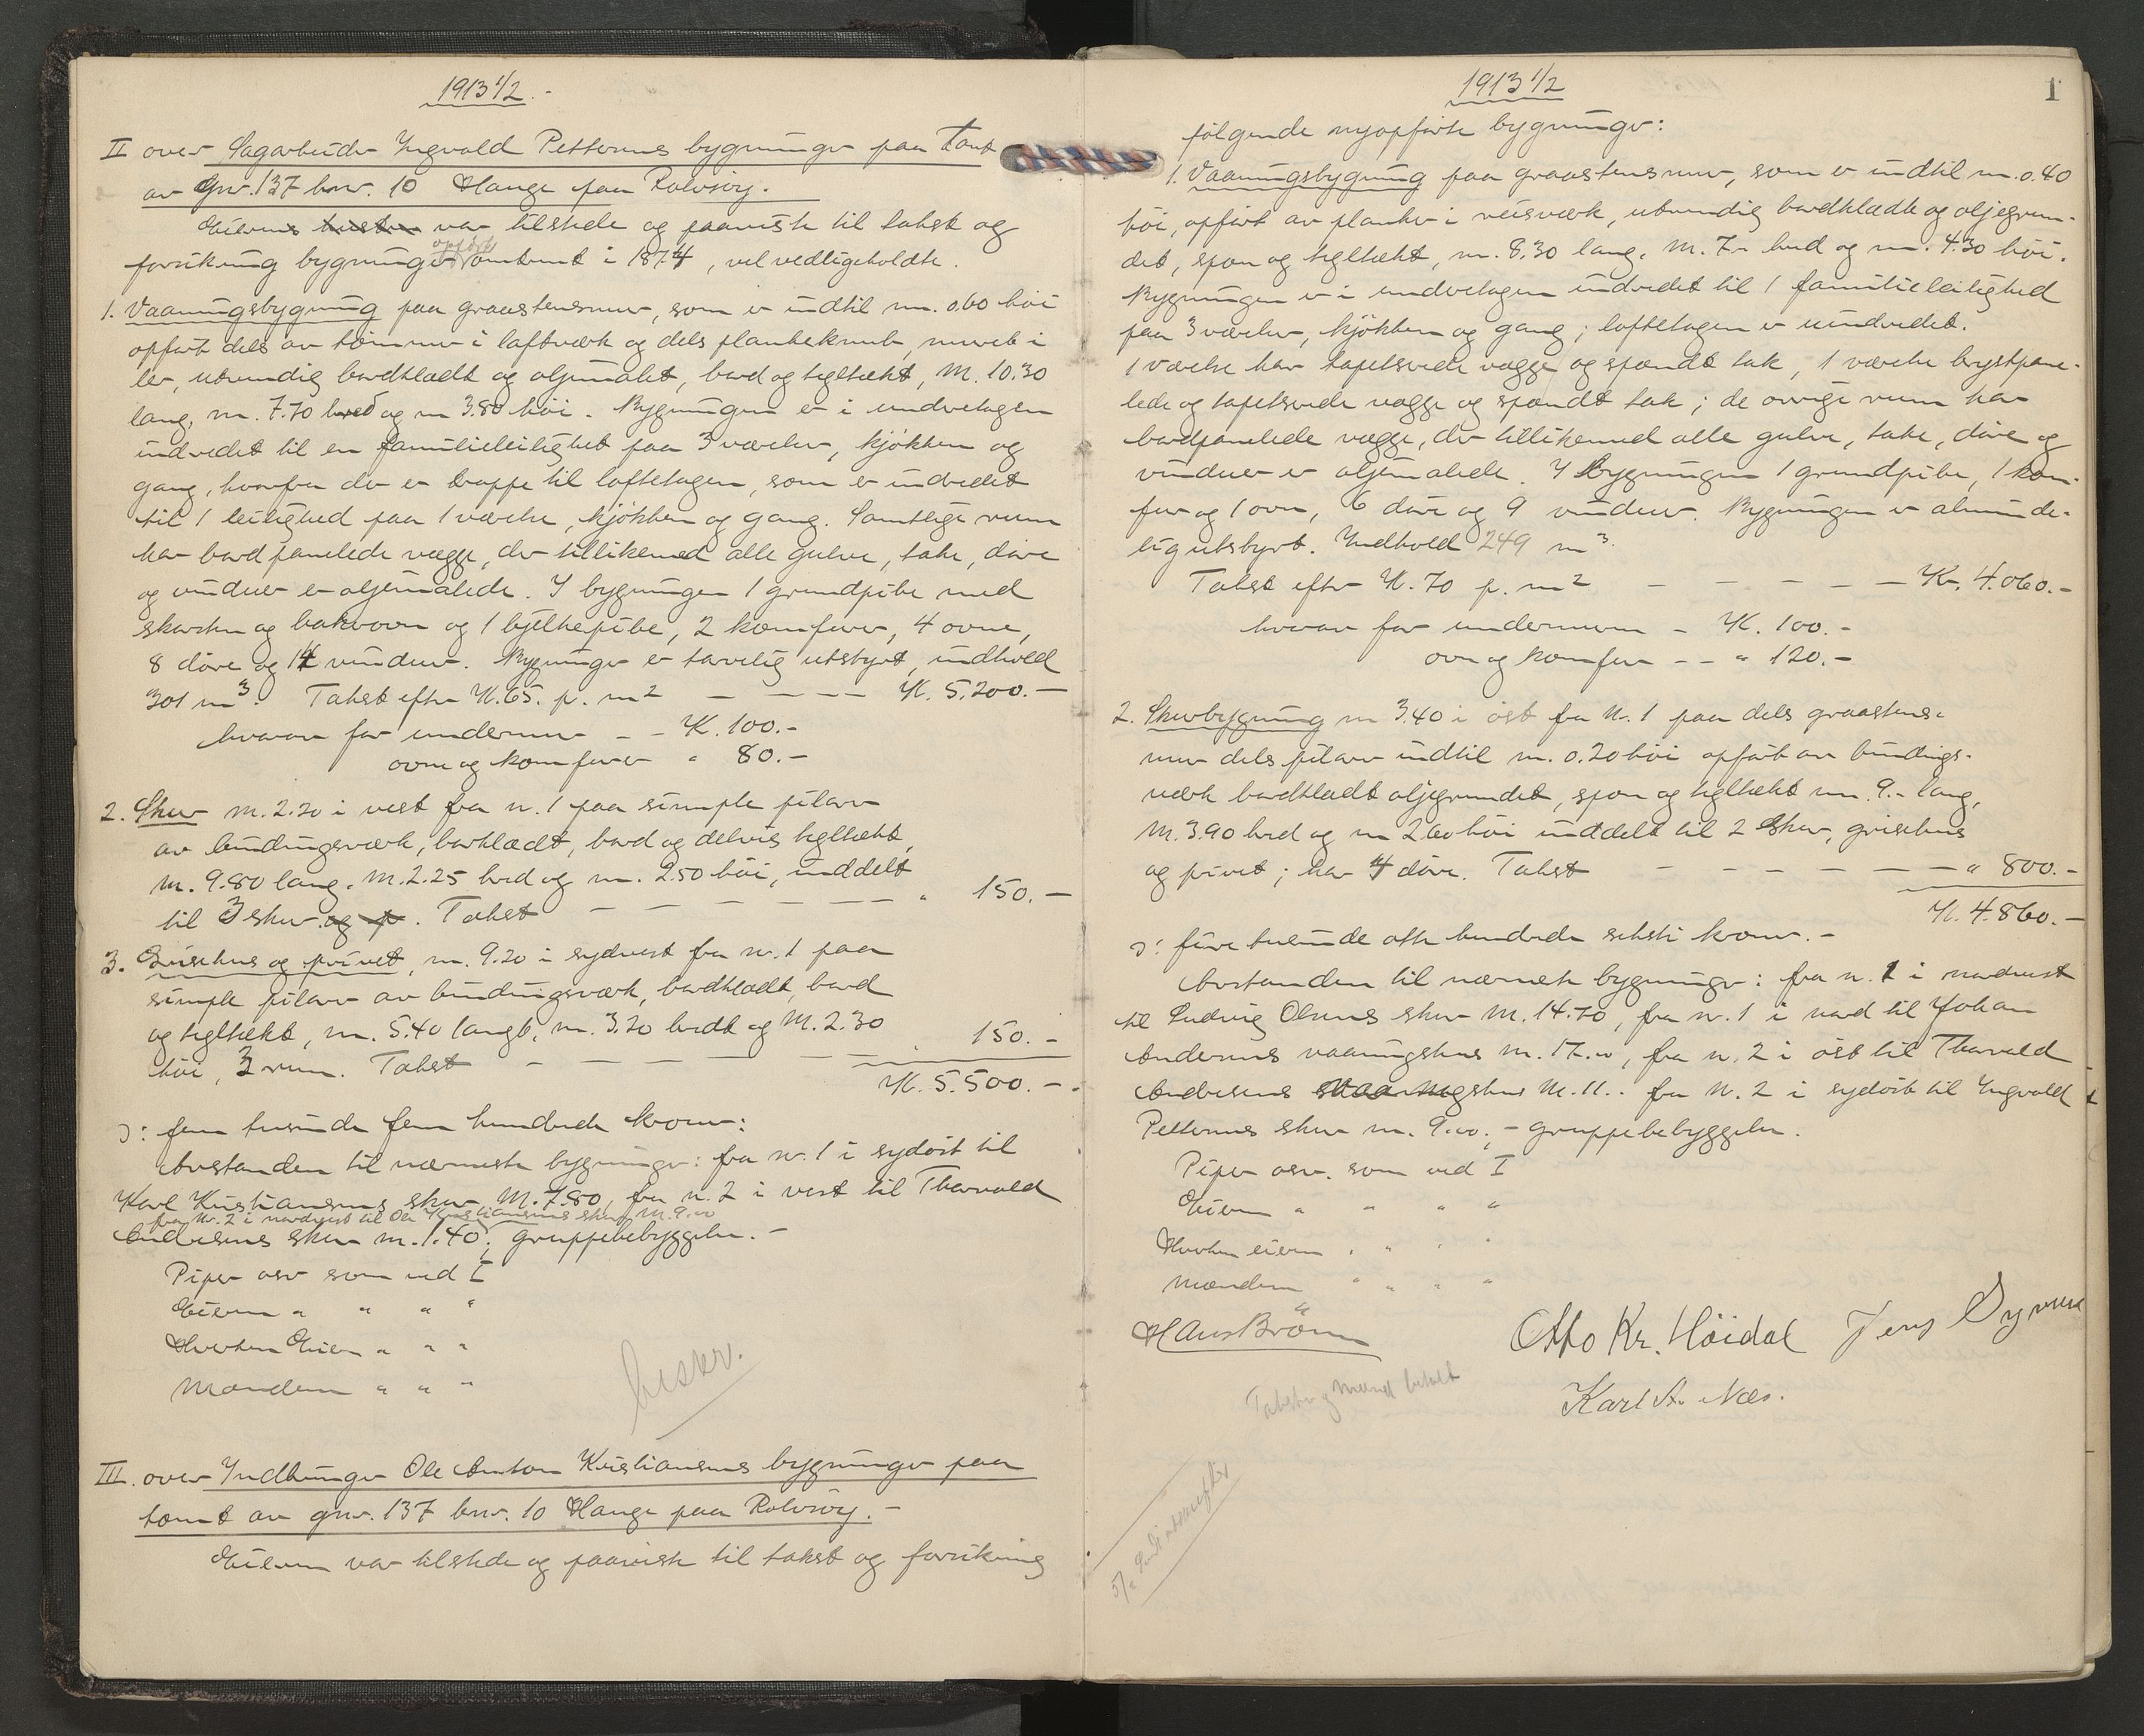 1913 1/2.
II over Sagarbeider Ingvald Pettersens bygninger paa tomt
av Gnr. 137 bnr. 10 Hauge paa Rolvsöy.
Eierens hustru var tilstede og paaviste til takst og
opført
forsikring bygninger omtrent i 1874, vel vedligeholdte.
1. Vaaningsbygning paa graastensmur, som er indtil m. 0.60 höi
opført dels av tömmer i laftverk og dels plankeknub, muret i
ler, utvendig bordklædt og oljemalet, bord og tegltækt, M. 10.30
lang, m. 7.70 bred og m 3.80 höi. Bygningen er i underetagen
indredet til en familieleilighet paa 3 værelser, kjøkken og
gang, hvorfra der er trappe til loftetagen, som er indredet
til 1 leilighed paa 1 værelse, kjøkken og gang. Samtlige rum
har bordpanelede vægge, der tillikemed alle gulve, take, döre
og vinduer er oljemalede. I bygningen 1 grundpibe med
skorsten og bakerovn og 1 bjelkepibe, 2 komfurer, 4 ovne,
8 döre og 14 vinduer. Bygningen er tarvelig utstyrt, indhold
301 m3. Takst efter K. 65. p. m2 - - - - K. 5.200. -
hvorav for undermur - - K. 100. -
ovne og komfurer " 80. -
2. Skur m. 2.20 i vest fra n. 1 paa simple pilarer
av bindingsverk, bordklædt, bord og delvis tegltækt,
m. 9.80 lang, M. 2.25 bred og m. 2.50 höi, inddelt
til 3 skur og p. Takst - - - - - - " 150. -
3. Grisehus og privet, m. 9.20 i sydvest fra n. 1 paa
simple pilarer av bindingsverk, bordklædt, bord
og tegltækt, m. 5.40 langt, m. 3.20 bredt og M. 2.30
höi, 3 rum. Takst - - - - " 150. -
K. 5.500. -
ɔ: fem tusinde fem hundrede kroner:
Avstanden til nærmeste bygninger: fra n. 1 i sydöst til
Karl Kristiansens skur M. 7.80, fra n. 2 i vest til Thorvald
fra Nr. 2 i nordvest til Ole Kristiansens skur m. 9.00
Andresens skur m. 1.40; gruppebebyggelse. -
Piper osv som ved I
Eieren " " " "
Hverken Eier " " "
Mændene " " "
beskr.
III. over Indbringer Ole Anton Kristiansens bygninger paa
tomt av gnr. 137 bnr. 10 Hauge paa Rolvsöy. -
Eieren var tilstede og paaviste til takst og forsikring
1913 1/2
1
følgende nyopførte bygninger:
1. Vaaningsbygning paa graastensmur, som er indtil m. 0.40
höi, opført av planker i reisverk, utvendig bordklædt og oljegrun-
det, spon og tegltækt, m. 8.30 lang, M. 7.- bred og m. 4.30 höi.
Bygningen er i underetagen indredet til 1 familieleilighed
paa 3 værelser, kjökken og gang; loftetagen er uindredet.
1 værelse har tapetserede vægge og spændt tak, 1 værelse brystpane-
lede og tapetserede vægge og spændt tak; de övrige rum har
bordpanelede vægge, der tillikemed alle gulve, take, döre og
vinduer er oljemalede. I Bygningen 1 grundpibe, 1 kom-
fur og 1 ovn, 6 döre og 9 vinduer. Bygningen er alminde-
lig utstyrt. Indhold 249 m3.
Takst efter K. 70 p. m2 - - - - - Kr. 4.060. -
hvorav for undermuren - K. 100. -
ovn og komfur - - " 120. -
2. Skurbygning m 3.40 i öst fra N. 1 paa dels graastens-
mur dels pilarer indtil m. 0.20 höi opført av bindings-
værk bordklædt oljegrundet, spon og tegltækt m. 9.- lang,
M. 3.90 bred og m 2.60 höi inddelt til 2 Skur, grisehus
og privet; har 4 döre. Takst - - - - - - " 800. -
K. 4.860. -
ɔ: fire tusinde otte hundrede seksti kroner. -
Avstanden til nærmeste bygninger: fra n. 1 i nordvest
til Ludvig Olsens skur M. 14.70, fra n. 1 i nord til Johan
Andersens vaaningshus m. 17.00, fra n. 2 i öst til Thorvald
Andresens vaaningshus M. 11.. fra N. 2 i sydöst til Ingvald
Pettersens skur m. 9.00; - gruppebebyggelse.
Piper osv. som ved I
Eieren " " " "
Hverken eieren " " " "
Mændene " " " "
Hans Brönn Otto Kr. Höidal Jens
Karl A. Næs.
Takst og mænd betalt